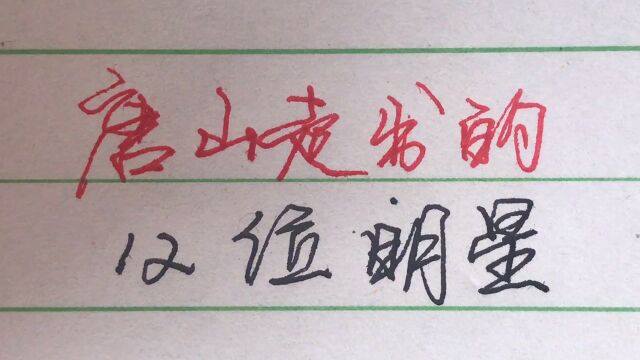 唐山走出的
12位明星